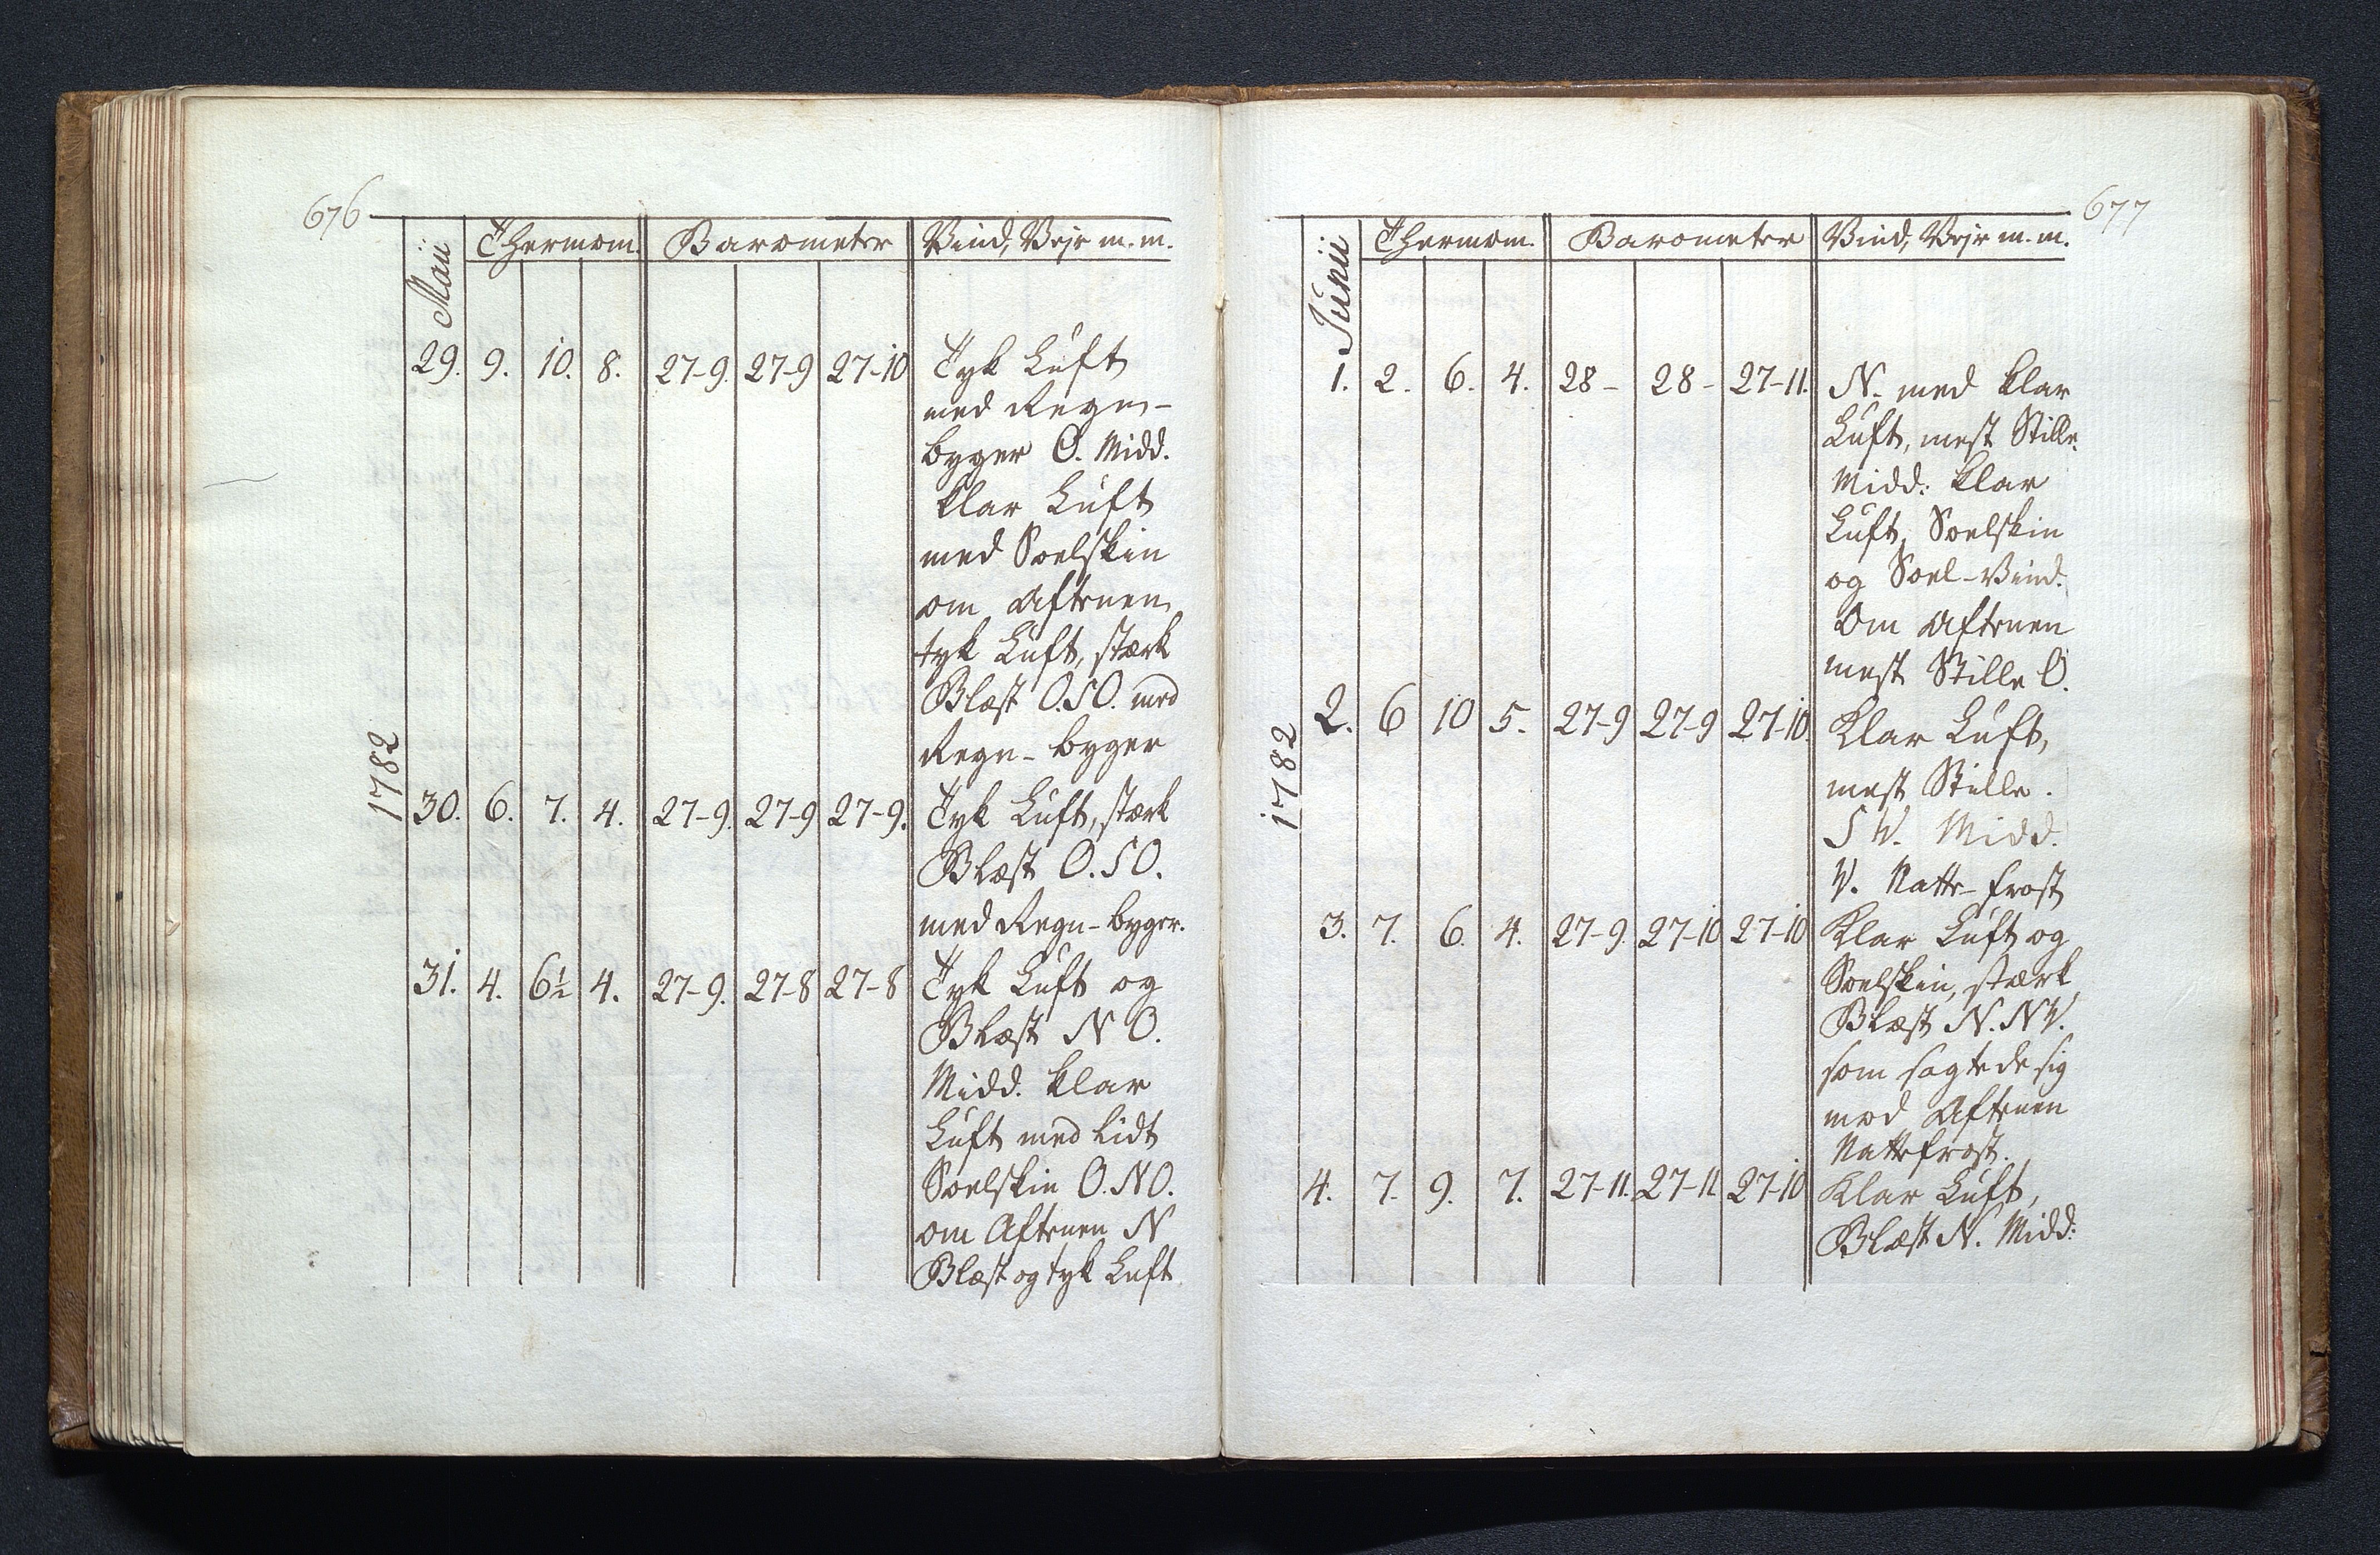 676
Maii Thermom. Barometer Vind, Vejr m. m.
29. 9. 10. 8. 27-9. 27-9 27-10 Tyk Luft
med Regn-
byger O. Midd.
klar Luft
med Soelskin
om Aftenen
tyk Luft, stærk
Blæst O.SO. med
Regn-byger
1782
30. 6. 7. 4. 27-9. 27-9 27-9. Tyk Luft, stærk
Blæst O.SO.
med Regn-byger.
31. 4. 6½ 4. 27-9. 27-8 27-8 Tyk Luft og
Blæst NO.
Midd. klar
Luft med lidt
Soelskin O.NO.
om Aftenen N
Blæst og tyk Luft
677
Junii Thermom. Barometer Vind, Vejr m. m.
1. 2. 6. 4. 28- 28- 27-11. N. med klar
Luft, mest Stille.
Midd: klar
Luft, Soelskin
og Soel-Vind.
Om Aftenen
mest Stille O.
1782
2. 6 10 5. 27-9 27-9 27-10. Klar Luft,
mest Stille.
SV. Midd.
V. Natte-frost
3. 7. 6. 4. 27-9. 27-10 27-10 Klar Luft og
Soelskin, stærk
Blæst N.NV.
som sagtede sig
mod Aftenen
Nattefrost.
4. 7. 9. 7. 27-11. 27-11 27-10 Klar Luft,
Blæst N. Midd: